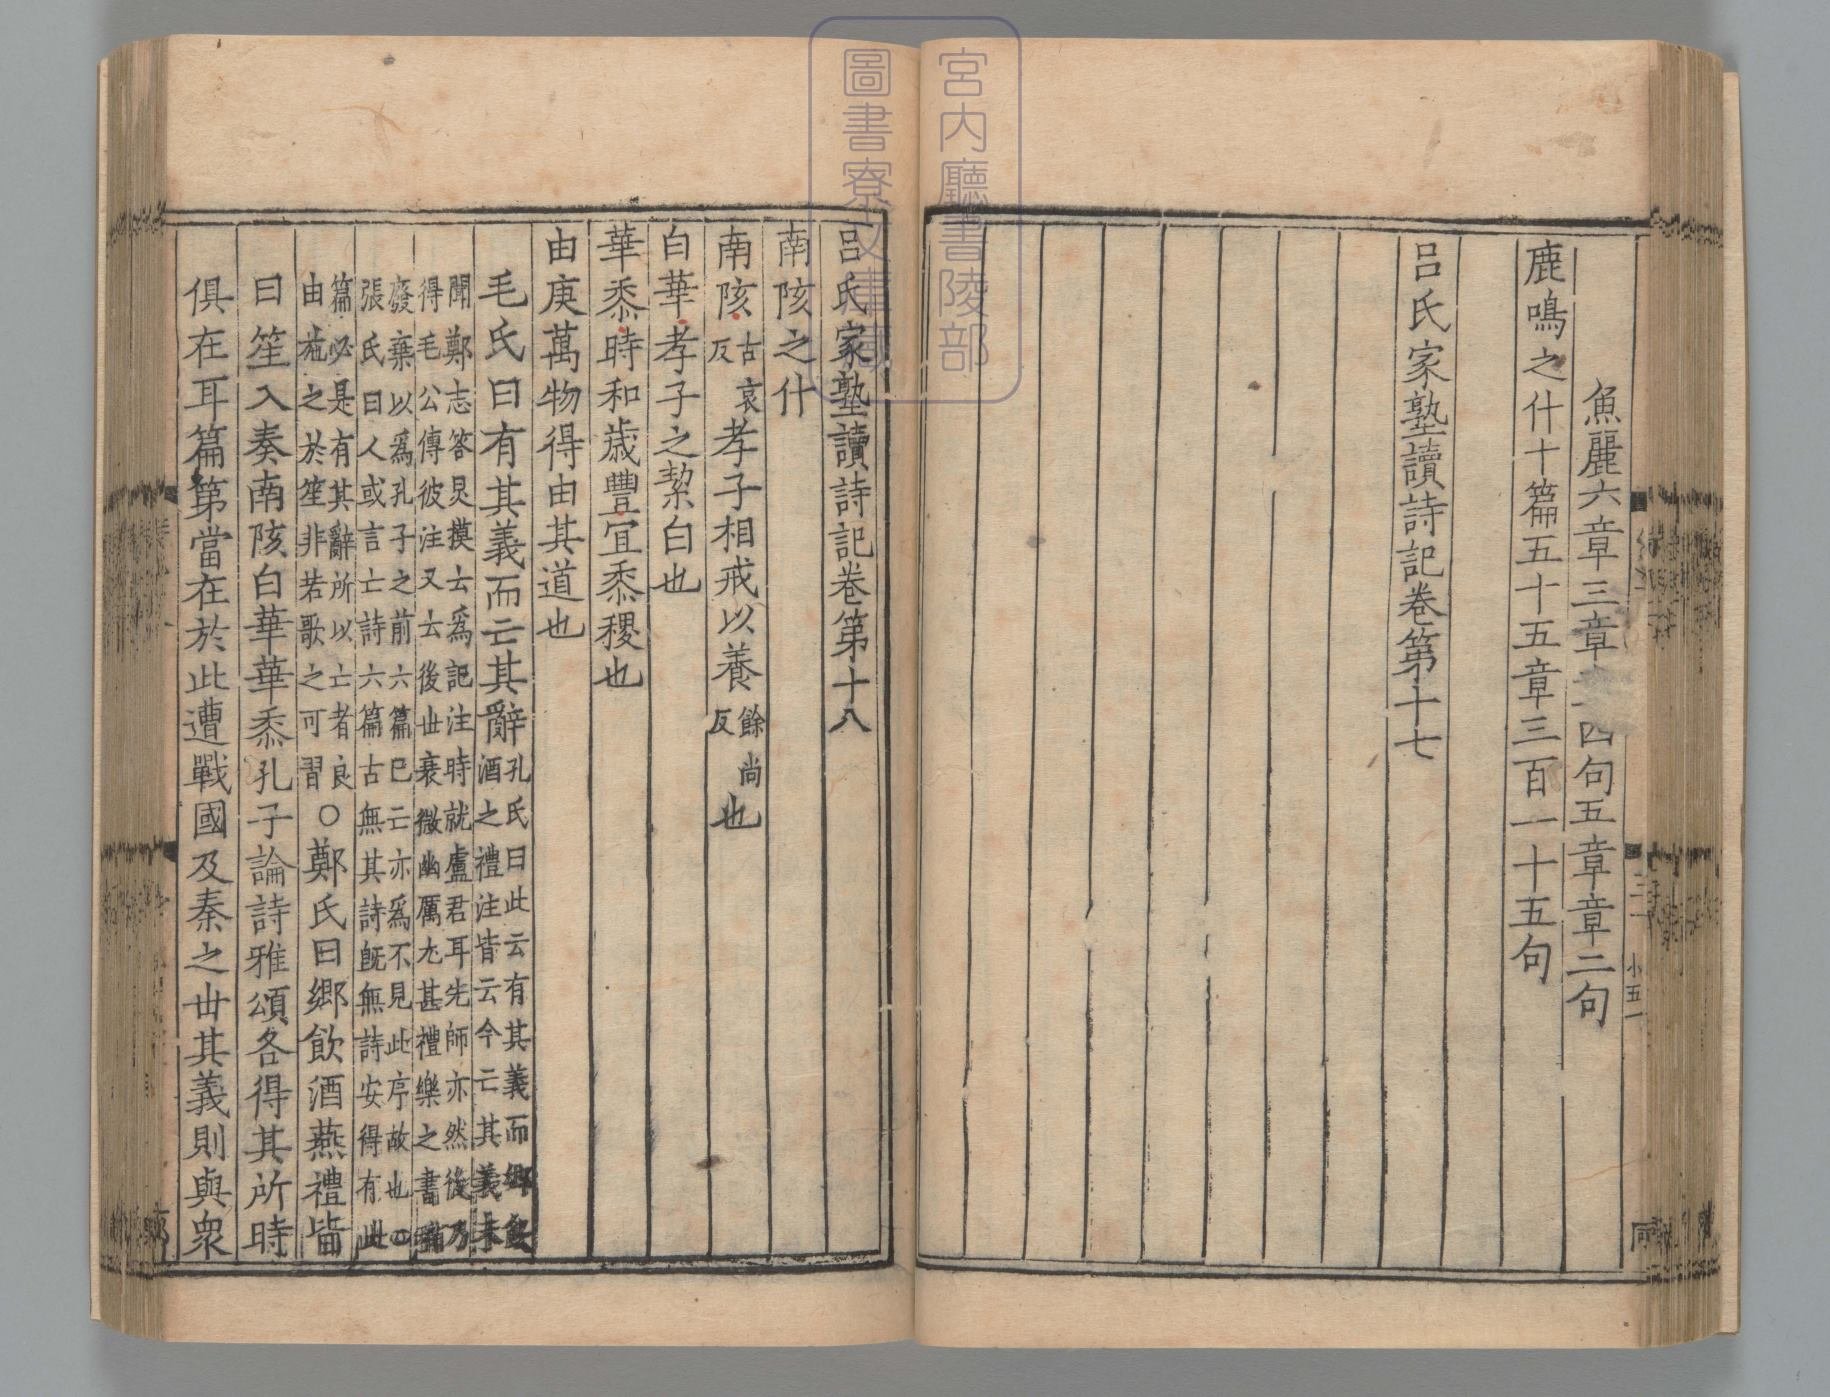 魚麗六章三章四句五章章二句
鹿鳴之什十篇五十五章三百一十五句
呂氏家塾讀詩記卷第十七
呂氏家塾讀詩記卷第十八
南陔之什
南陔古哀反孝子相戒以養餘尚反也
白華孝子之絜白也
華黍時和歲豐宜黍稷也
由庚萬物得由其道也
毛氏曰有其義而亡其辭孔氏曰此云有其義而鄉飲
酒之禮注皆云今亡其義未
聞鄭志答炅摸云為記注時就盧君耳先師亦然後乃
得毛公傳彼注又云後世衰微幽厲尤甚禮樂之書稍
廢棄以為孔子之前六篇已亡亦為不見此序故也○
張氏曰人或言亡詩六篇古無其詩旣無詩安得有此
篇必是有其辭所以亡者良
由施之於笙非若歌之可習○鄭氏曰鄉飲酒燕禮皆
曰笙入奏南陔白華華黍孔子論詩雅頌各得其所時
俱在耳篇第當在於此遭戰國及秦之世其義則與衆
小五一
宮内廳書陵部
圖書寮文庫藏